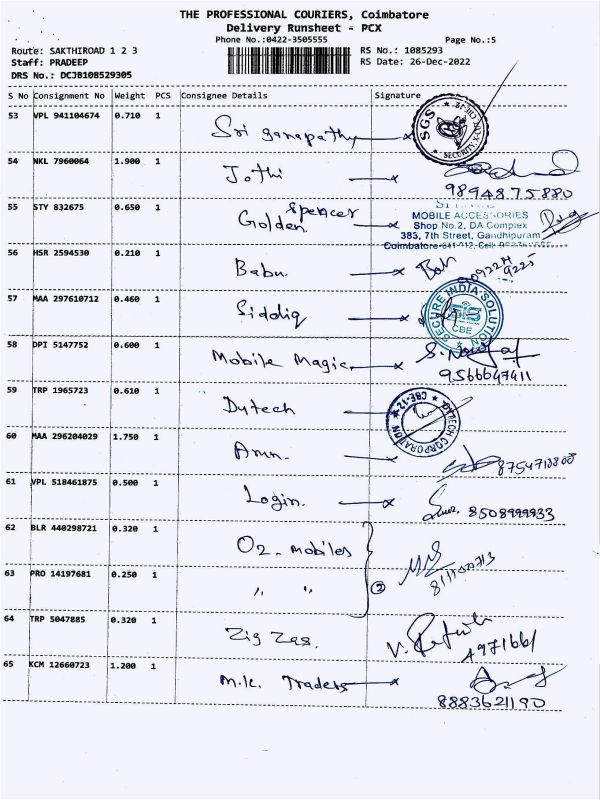 THE PROFESSIONAL COURIERS, Coimbatore
Delivery Runsheet - PCX
Phone No.:0422-3505555 Page No.:5
Route: SAKTHIROAD 1 2 3 RS No.: 1085293
Staff: PRADEEP RS Date: 26-Dec-2022
DRS No.: DCJB108529305
S No Consignment No Weight PCS Consignee Details Signature
53 VPL 941104674 0.710 1 Sri ganapathy SGS SECURITY
54 NKL 7960064 1.900 1 Jothi
9894875880
55 STY 832675 0.650 1 Golden Spencer
MOBILE ACCESSORIES
Shop No.2, DA Complex
383, 7th Street, Gandhipuram
Coimbatore-641 012, Cell:
56 HSR 2594530 0.210 1 Babu.
57 MAA 297610712 0.460 1 Siddiq SECURE INDIA SOLUTION SIS CBE
58 DPI 5147752 0.600 1 Mobile Magic
9566647411
59 TRP 1965723 0.610 1 Dytech DYTECH CORPORATION CBE-12
60 MAA 296204029 1.750 1 Arun.
61 VPL 518461875 0.500 1 Login. 8508999933
62 BLR 440298721 0.320 1 O2 - mobiles
63 PRO 14197681 0.250 1 " " 2
64 TRP 5047885 0.320 1 Zig Zag.
65 KCM 12660723 1.200 1 M.K. Traders
8883621190